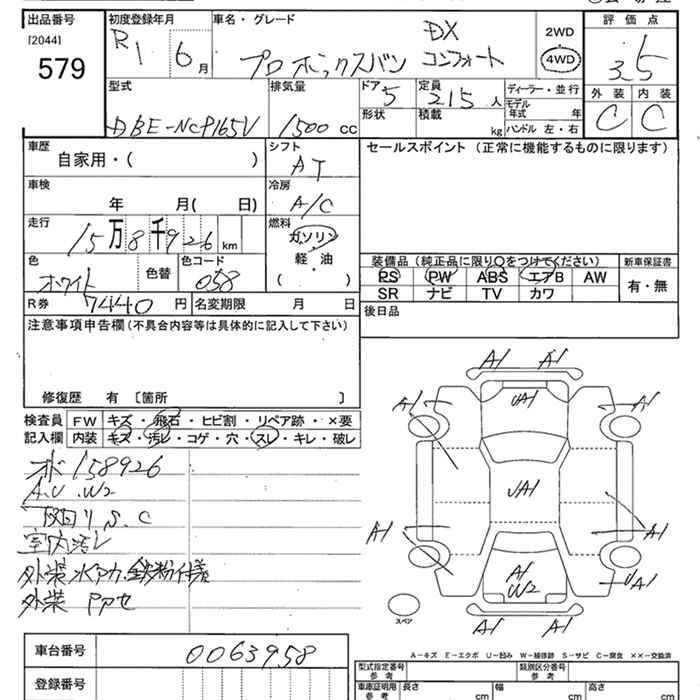 出品番号 初度登録年月 車名・グレード 評価点
[2044]
579
R1 6月 プロボックスバン DX コンフォート 2WD 4WD 3.5
型式 排気量 ドア 定員 ディーラー・並行 外装 内装
DBE-NCP165V 1500 cc 5 2/5人 モデル年式 年 C C
形状 積載 kg ハンドル 左・右
車歴 シフト セールスポイント(正常に機能するものに限ります)
自家用・( ) AT
車検 冷房
年 月( 日) A/C
走行 燃料
15万8千926 km ガソリン
軽・油
( )
色 色替 色コード 装備品(純正品に限り○をつけてください) 新車保証書
ホワイト 058 PS PW ABS エアB AW 有・無
R券 7440円 名変期限 月 日 SR ナビ TV カワ
注意事項申告欄(不具合内容等は具体的に記入して下さい) 後日品
修復歴 有 [箇所 ]
検査員 FW キズ・飛石・ヒビ割・リペア跡・×要
記入欄 内装 キズ・汚レ・コゲ・穴・スレ・キレ・破レ
オド158926
A.U.W2
S.C
室内汚レ
外装 水アカ、鉄粉仕様
外装
A1 A1
A1 UA1 A1
UA1
A1 A1
A1 W2 UA1
A1 A1
スペア
A-キズ E-エクボ U-凹み W-補修跡 S-サビ C-腐食 ××-交換済
車台番号 0063958
登録番号
型式指定番号 参考 類別区分番号 参考
車庫証明用 参考 長さ cm 幅 cm 高さ cm